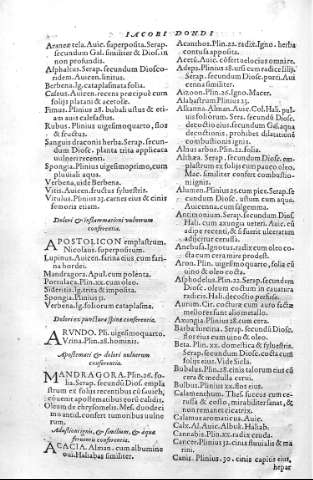 IACOBI DONDI
Araneæ tela. Auic. superposita. Serap.
secundum Gal. similiter & Dios. in
non profundis.
Asphaltus. Serap. secundum Dioscoridem.
Auicen. linitus.
Berbena. Ig. cataplasmata folia.
Caseus. Auicen. recens præcipue cum
folijs platani & acetosæ.
Fimus. Plinius 28. bubali ustus & etiam
auis calefactus.
Rubus. Plinius uigesimoquarto, flos
& fructus.
Sanguis draconis herba. Serap. secundum
Diosc. planta trita applicata
uulneri recenti.
Spongia. Plinius uigesimoprimo, cum
pluuiali aqua.
Verbena, uide Berbena.
Vitis. Auicen. fructus syluestris.
Vitulus. Plinius 23. carnes eius & cinis
femoris etiam.
Dolori & inflammationi vulnerum
conferentia.
APOSTOLICON emplastrum.
Nicolaus. superpositum.
Lupinus. Auicen. farina eius cum farina
hordei.
Mandragora. Apul. cum polenta.
Portulaca. Plin. xx. cum oleo.
Sideritis. Ig. trita & imposita.
Spongia. Plinius 31.
Verbena. Ig. foliorum cataplasma.
Dolori ex punctura spinæ conferentia.
ARVNDO. Pli. uigesimoquarto.
Vrina. Plin. 28. hominis.
Apostemati & dolori vulnerum
conferentia.
MANDRAGORA. Plin. 26. folia.
Serap. secundũ Dios. emplastrum
ex folijs recentibus cõfricatis,
conuenit apostematibus cordi calidis.
Oleum de chrysomelis. Mes.
confert tumoribus uulnerum.
Adustioni ignis, & similium, & aquæ
feruentis conferentia.
ACACIA. Almãs. cum albumine
oui. Haliabas similiter.
Acanthos. Plin. 22. radix. Igno. herba
contusa apposita.
Acetũ. Auic. cõfert uelocius omni re.
Adeps. Plinius 28. usi cum radice lilij.
Serap. secundum Diosc. porci. Auicenna
similiter.
Aizoon. Plin. 26. Igno. Macer.
Alabastrum Plinius 35.
Alcanna. Alman. Auic. Col. Hali. puluis
foliorum. Sera. secundũ Diosc.
decoctio eius, secundum Gal. aqua
decoctionis, prohibet ablationẽ
combustionis ignis.
Albus arbor. Plin. 22. folia.
Althæa. Serap. secundum Diosc. emplastrum
ex folijs cum pauco oleo.
Mac. similiter confert combustioni
ignis.
Alumen. Plinius 25. cum pice. Serap. secundum
Diosc. ustum cum aquo.
Auicenna, cum salgemma.
Antimonium. Serap. secundum Diosc.
Hali. cum axungia ueteri. Auic. cũ
adipe recenti, & si fuerit ulceratum
adijcitur cerussa.
Anchusa. Ignotus. radix cum oleo cocta
cum cera mire prodest.
Aron. Plin. uigesimoquarto, folia cũ
uino & oleo cocta.
Asphodelus. Plin. 22. Serap. secundum
Diosc. oleum coctum in cauatura
radicis. Hali. decoctio prosus.
Aurum. Cir. cocturæ cum auro factæ
meliores sunt alio metallo.
Axungia. Plinius 28. cum cera.
Barba hircina. Serap. secundũ Diosc.
flos eius cum uino & oleo.
Beta. Plin. xx. domestica & syluestris.
Serap. secundum Diosc. cocta cum
folijs eius. Vide Sicla.
Bubalus. Plin. 28. cinis talorum eius cũ
cera & medulla cerui.
Bulbus. Plinius xx. flos eius.
Calamenthum. Thes. succus cum cerussa
& cocto, mirabiliter sanat, &
non remanet cicatrix.
Calamus aromaticus. Auic.
Calx. Al. Auic. Albuk. Haliab.
Cannabis. Plin. xx. radix cruda.
Cancer. Plinius 32. cinis fluuialis & marini.
Canis. Plinius. 30. cinis capitis eius,
hepar